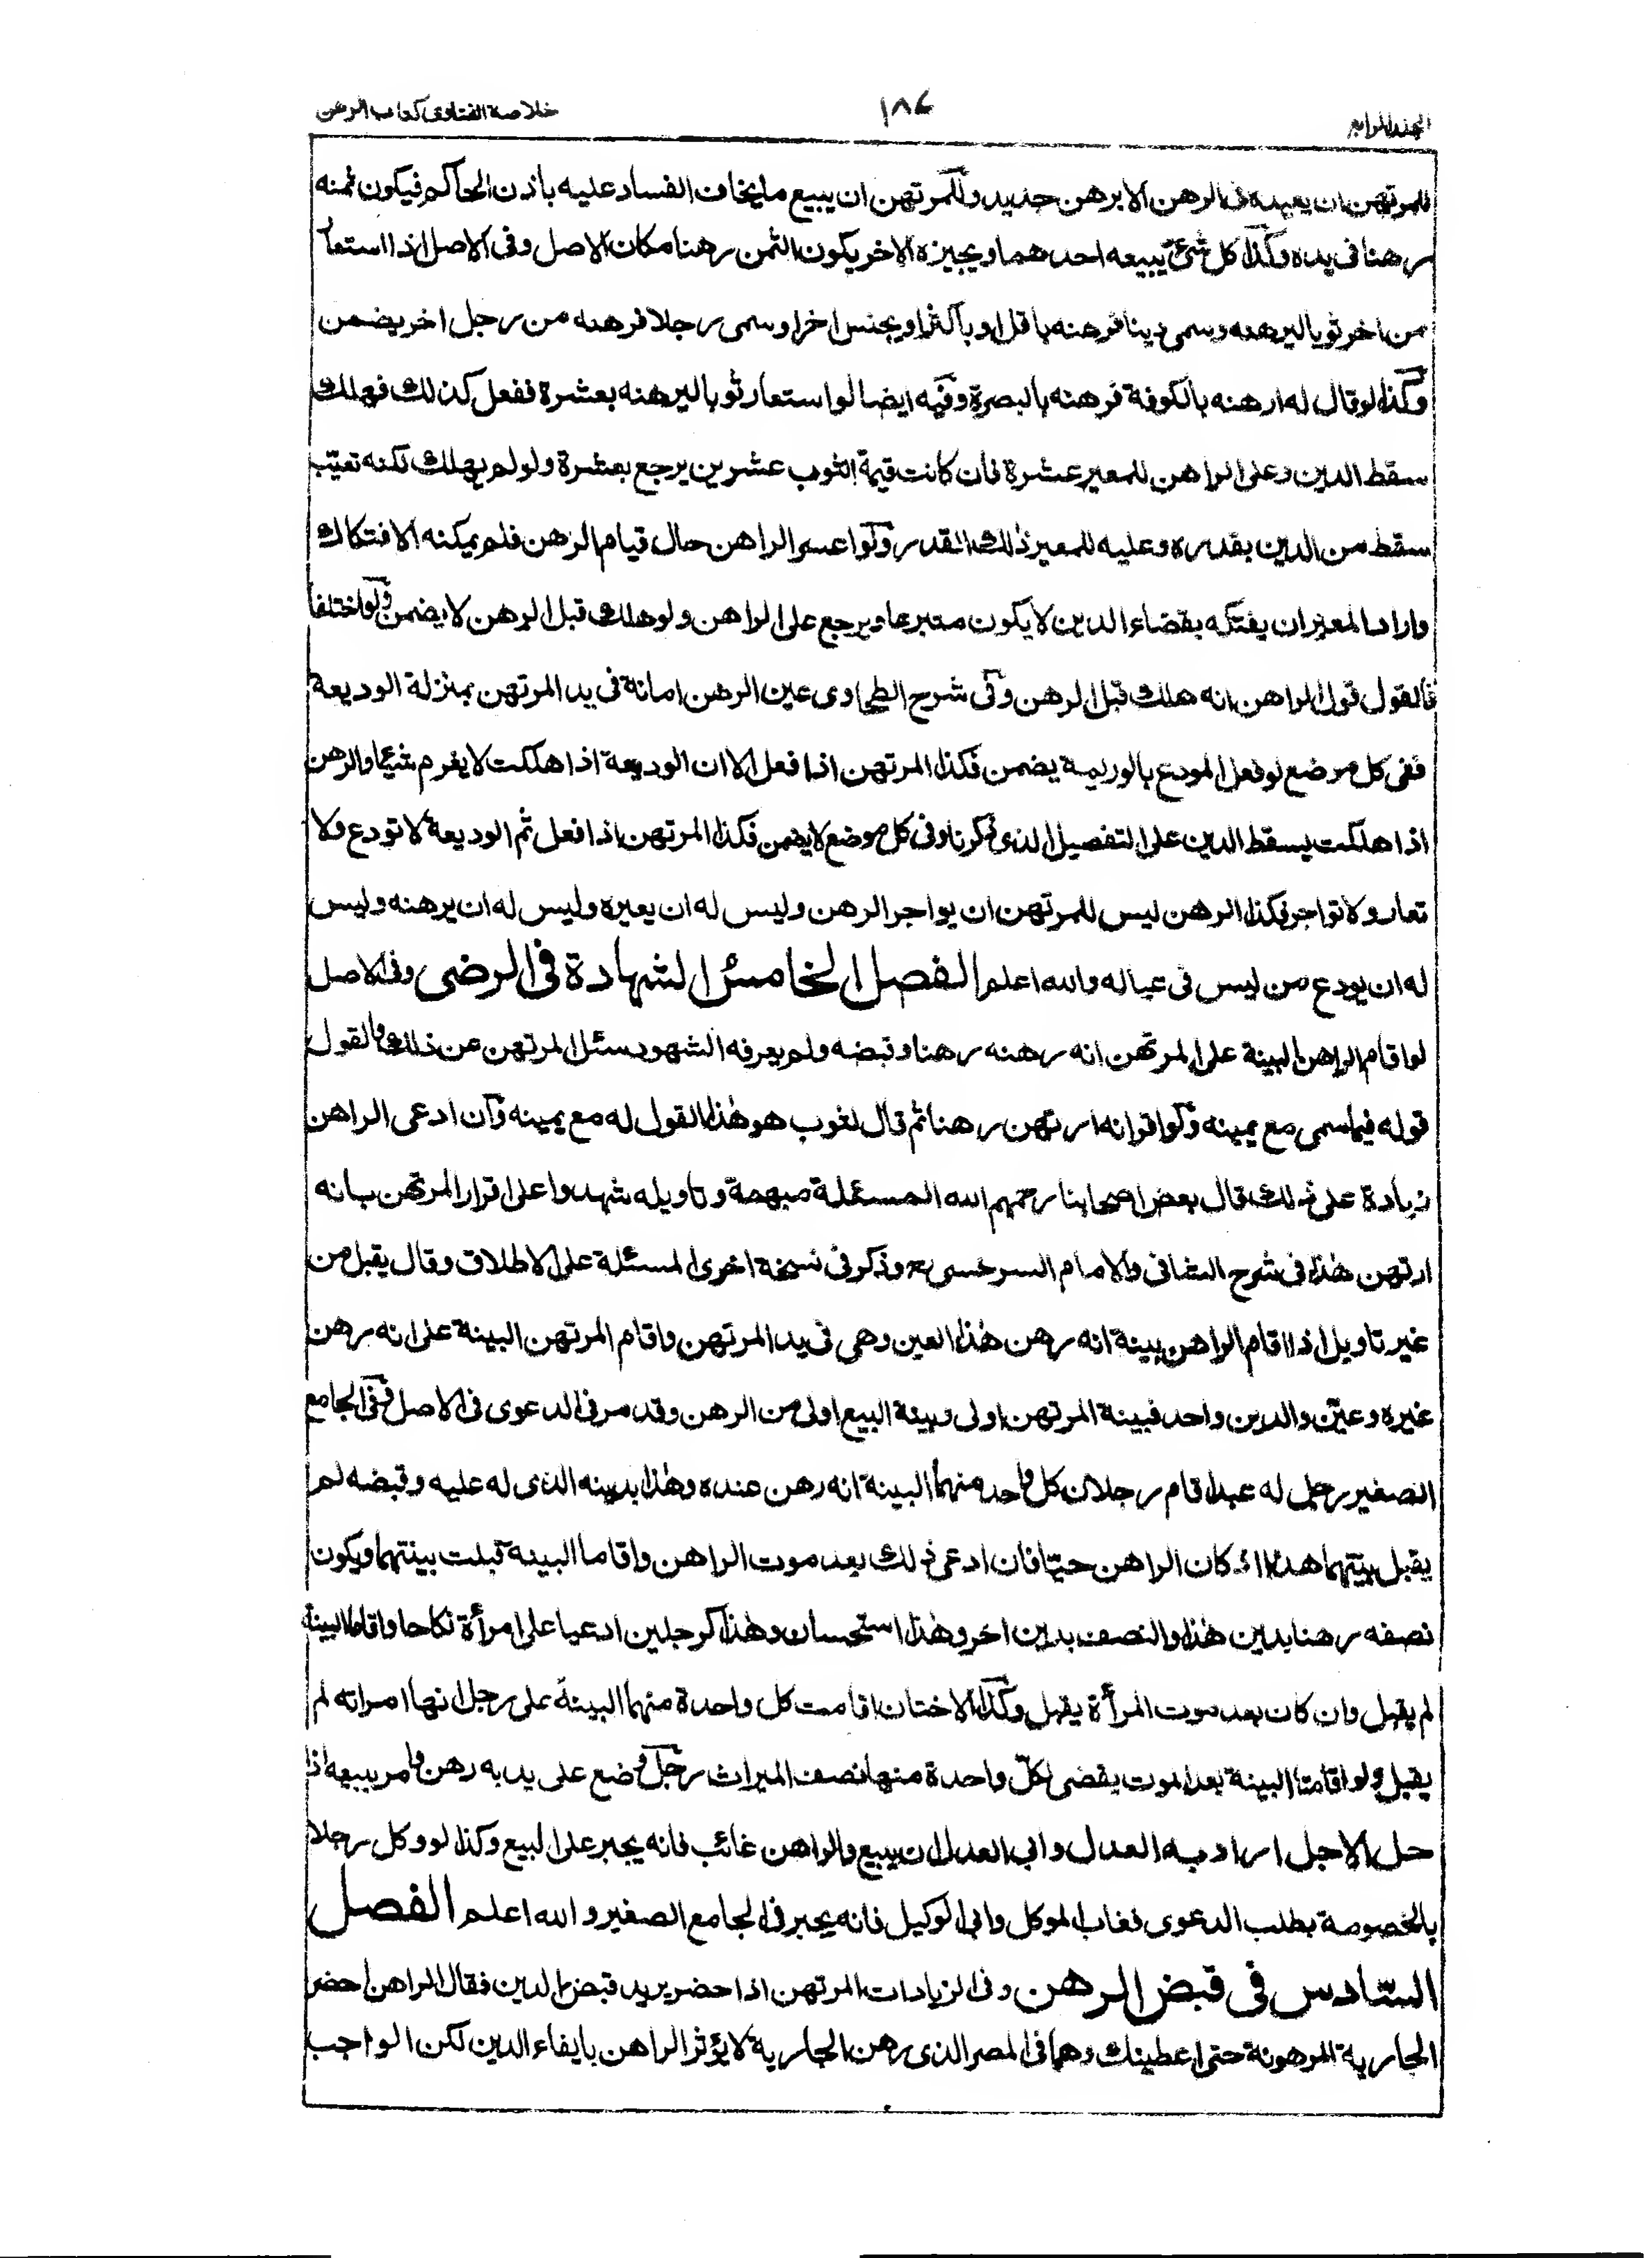 الجلد الرابع
١٨٧
خلاصة الفتاوى كتاب الرهن
للمرتهن ان يعيده فى الرهن الا برهن جديد وللمرتهن ان يبيع ما يخاف الفساد عليه باذن الحاكم فيكون ثمنه
رهنا فى يده وكذا كل شئ يبيعه احدهما ويجيزه الاخر يكون الثمن رهنا مكان الاصل وفى الاصل اذا استعار
من اخر ثوبا ليرهنه وسمى دينا فرهنه باقل او باكثر او بجنس اخر او سمى رجلا فرهنه من رجل اخر يضمن
وكذا لو قال له ارهنه بالكوفة فرهنه بالبصرة وفيه ايضا لو استعار ثوبا ليرهنه بعشرة ففعل كذلك فهلك
سقط الدين وعلى الراهن للمعير عشرة فان كانت قيمة الثوب عشرين يرجع بعشرة ولو لم يهلك لكنه تعيّب
سقط من الدين بقدره وعليه للمعير ذلك القدر ولو اعسر الراهن حال قيام الرهن فلم يمكنه الافتكاك
واراد المعير ان يفتكه بقضاء الدين لا يكون متبرعا ويرجع على الراهن ولو هلك قبل الرهن لا يضمن ولو اختلفا
فالقول قول الراهن انه هلك قبل الرهن وفى شرح الطحاوى عين الرهن امانة فى يد المرتهن بمنزلة الوديعة
ففى كل موضع لو فعل المودع بالوديعة يضمن فكذا المرتهن اذا فعل الا ان الوديعة اذا هلكت لا يغرم شيئا والرهن
اذا هلكت يسقط الدين على التفصيل الذى ذكرنا وفى كل موضع لا يضمن فكذا المرتهن اذا فعل ثم الوديعة لا تودع ولا
تعار ولا تواجر فكذا الرهن ليس للمرتهن ان يواجر الرهن وليس له ان يعيره وليس له ان يرهنه وليس
له ان يودع من ليس فى عياله والله اعلم الفصل الخامس الشهادة فى الرضى وفى الاصل
لو اقام الراهن البينة على المرتهن انه رهنه رهنا وقبضه ولم يعرفه الشهود سئل المرتهن عن ذلك والقول
قوله فيما سمى مع يمينه ولو اقر انه ارتهن رهنا ثم قال لثوب هو هذا القول له مع يمينه وان ادعى الراهن
زيادة على ذلك قال بعض اصحابنا رحمهم الله المسئلة مبهمة وتاويله شهدوا على اقرار المرتهن بانه
ارتهن هذا فى شرح الشافى والامام السرخسى رح وذكر فى نسخة اخرى المسئلة على الاطلاق وقال يقبل من
غير تاويل اذا اقام الراهن بينة انه رهن هذا العين وهى فى يد المرتهن واقام المرتهن البينة على انه رهن
غيره وعيّن والدين واحد فبينة المرتهن اولى وبينة البيع اولى من الرهن وقد مر فى الدعوى فى الاصل ففى الجامع
الصغير رجل له عبد اقام رجلان كل واحد منهما البينة انه رهن عنده وهذا بدينه الذى له عليه وقبضه لم
يقبل بينتهما هذا اذ كان الراهن حيّا فان ادعى ذلك بعد موت الراهن واقاما البينة قبلت بينتهما ويكون
نصفه رهنا بدين هذا والنصف بدين اخر وهذا استحسان وهذا كرجلين ادعيا على امرأة نكاحا واقاما البينة
لم يقبل وان كان بعد موت المرأة يقبل وكذا الاختان اقامت كل واحدة منهما البينة على رجل انها امراته لم
يقبل ولو اقامتا البينة بعد الموت يقضى لكل واحدة منها نصف الميراث رجل وضع على يديه رهن وامر ببيعه اذا
حل الاجل اراد به العدل وابى العدل ان يبيع والراهن غائب فانه يجبر على البيع وكذا لو وكل رجلا
بالخصومة بطلب الدعوى فغاب الموكل وابى الوكيل فانه يجبر فى الجامع الصغير والله اعلم الفصل
السّادس فى قبض الرهن وفى الزيادات المرتهن اذا حضر يريد قبض الدين فقال الراهن احضر
الجارية المرهونة حتى اعطينك وهما فى المصر الذى رهن الجارية لا يؤثر الراهن بايفاء الدين لكن الواجب